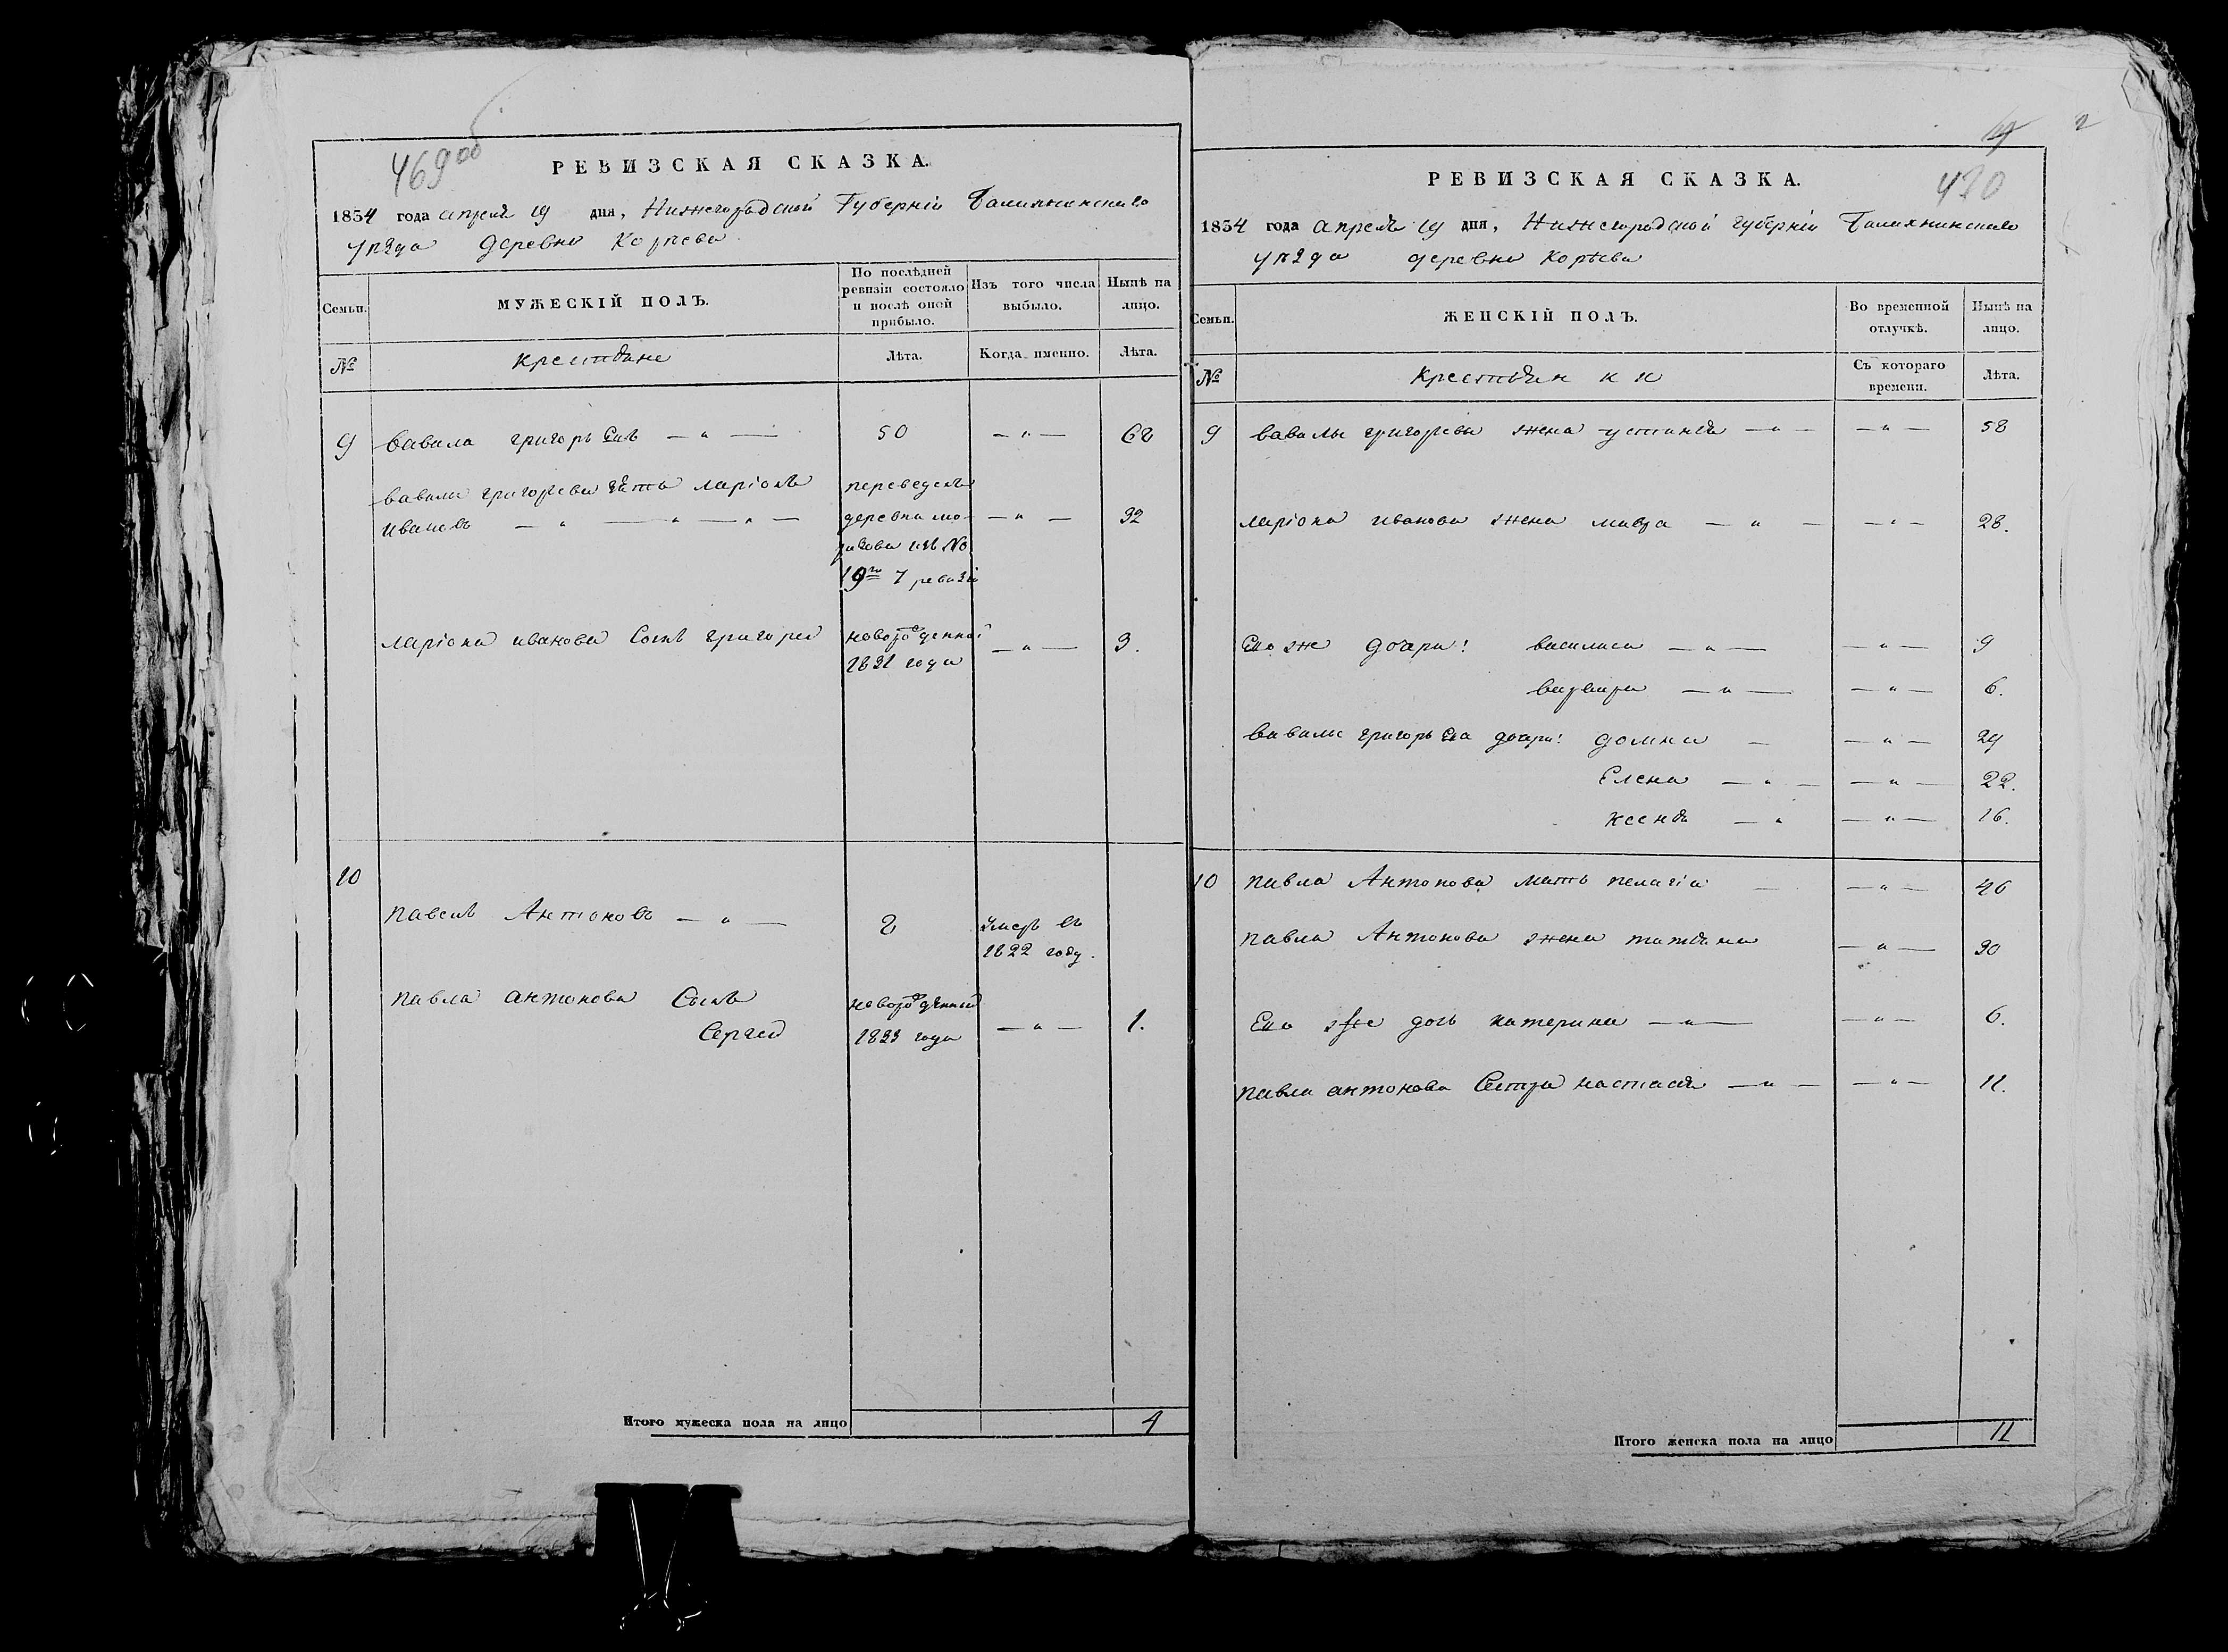 469 об
РЕВИЗСКАЯ СКАЗКА.
1834 года апреля 19 дня, Нижегородской Губерніи Балихнинскаго
уѣзда деревни Корѣева
Семьи.
МУЖЕСКІЙ ПОЛЪ.
По послѣдней ревизіи состояло и послѣ оной прибыло.
Изъ того числа выбыло.
Нынѣ на лицо.
№
крестьяне
Лѣта.
Когда именно.
Лѣта.
9 вавила григорьевъ — „ — 50 — „ — 68
вавилы григорьева зять ларіонъ переведенъ
ивановъ — „ — „ — „ — деревни мо- — „ — 32
изъ №
19го 7 ревизіи
ларіона иванова сынъ григорей новорожденной — „ — 3.
1831 года
10
павелъ Антоновъ — „ — 2 умеръ въ
1822 году.
павла антонова сынъ новорожденный
Сергей 1833 года — „ — 1.
Итого мужеска пола на лицо 4
2
430
РЕВИЗСКАЯ СКАЗКА.
1834 года апреля 19 дня, Нижегородской губерніи Балихнинскаго
уѣзда деревни Корѣева
Семьи.
ЖЕНСКІЙ ПОЛЪ.
Во временной отлучкѣ.
Нынѣ на лицо.
№
крестьянки
Съ котораго времени.
Лѣта.
9 вавилы григорьева жена устинья — „ — — „ — 58
ларіона иванова жена мавра — „ — — „ — 28.
Его же дочри: василиса — „ — — „ — 9
варвара — „ — — „ — 6.
вавилы григорьева дочри: домна — — „ — 29
Елена — „ — — „ — 22.
ксенья — „ — „ — 16.
10 павла Антонова мать пелагіа — — „ — 46
павла Антонова жена татьяна — „ — 30
Его же дочь катерина — „ — — „ — 6.
павла антонова сестра настасья — „ — — „ — 11.
Итого женска пола на лицо 11